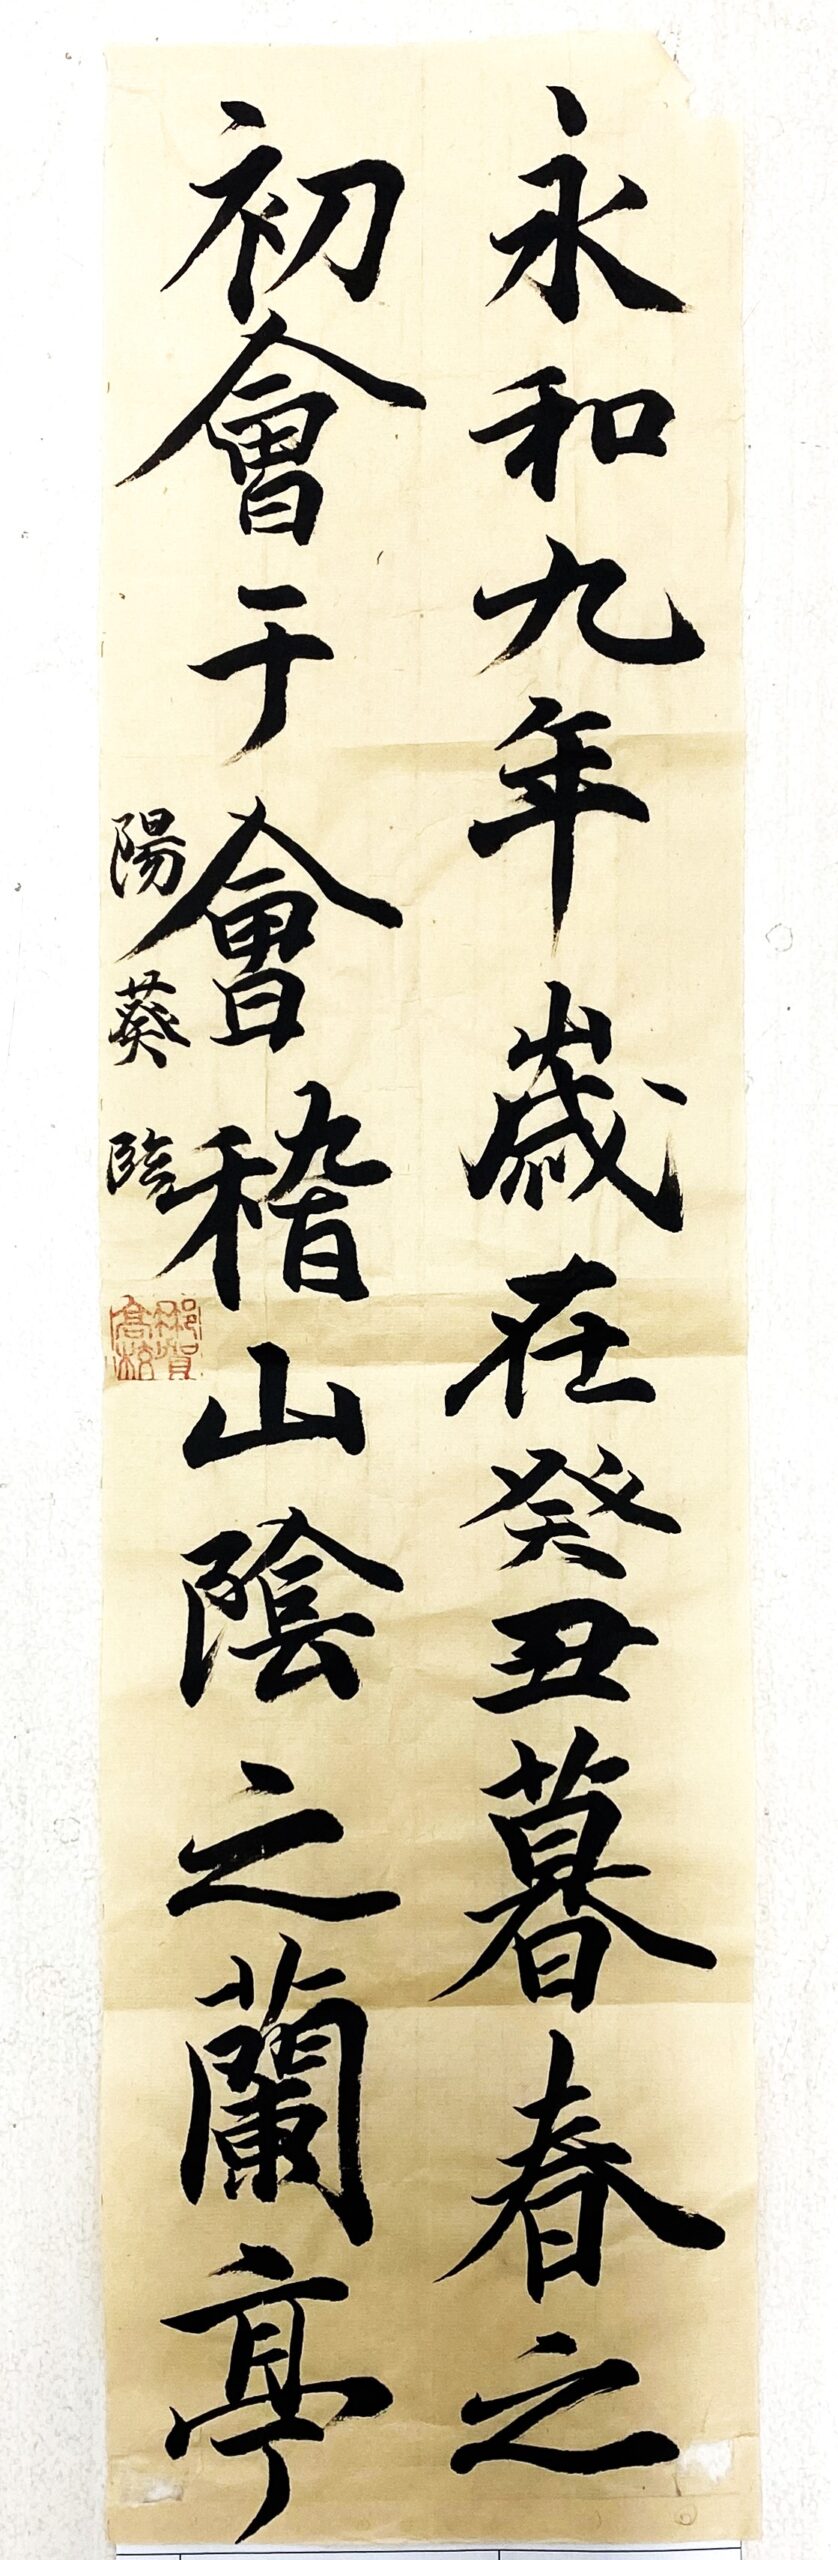 永和九年歲在癸丑暮春之
初會于會稽山陰之蘭亭
陽葵臨